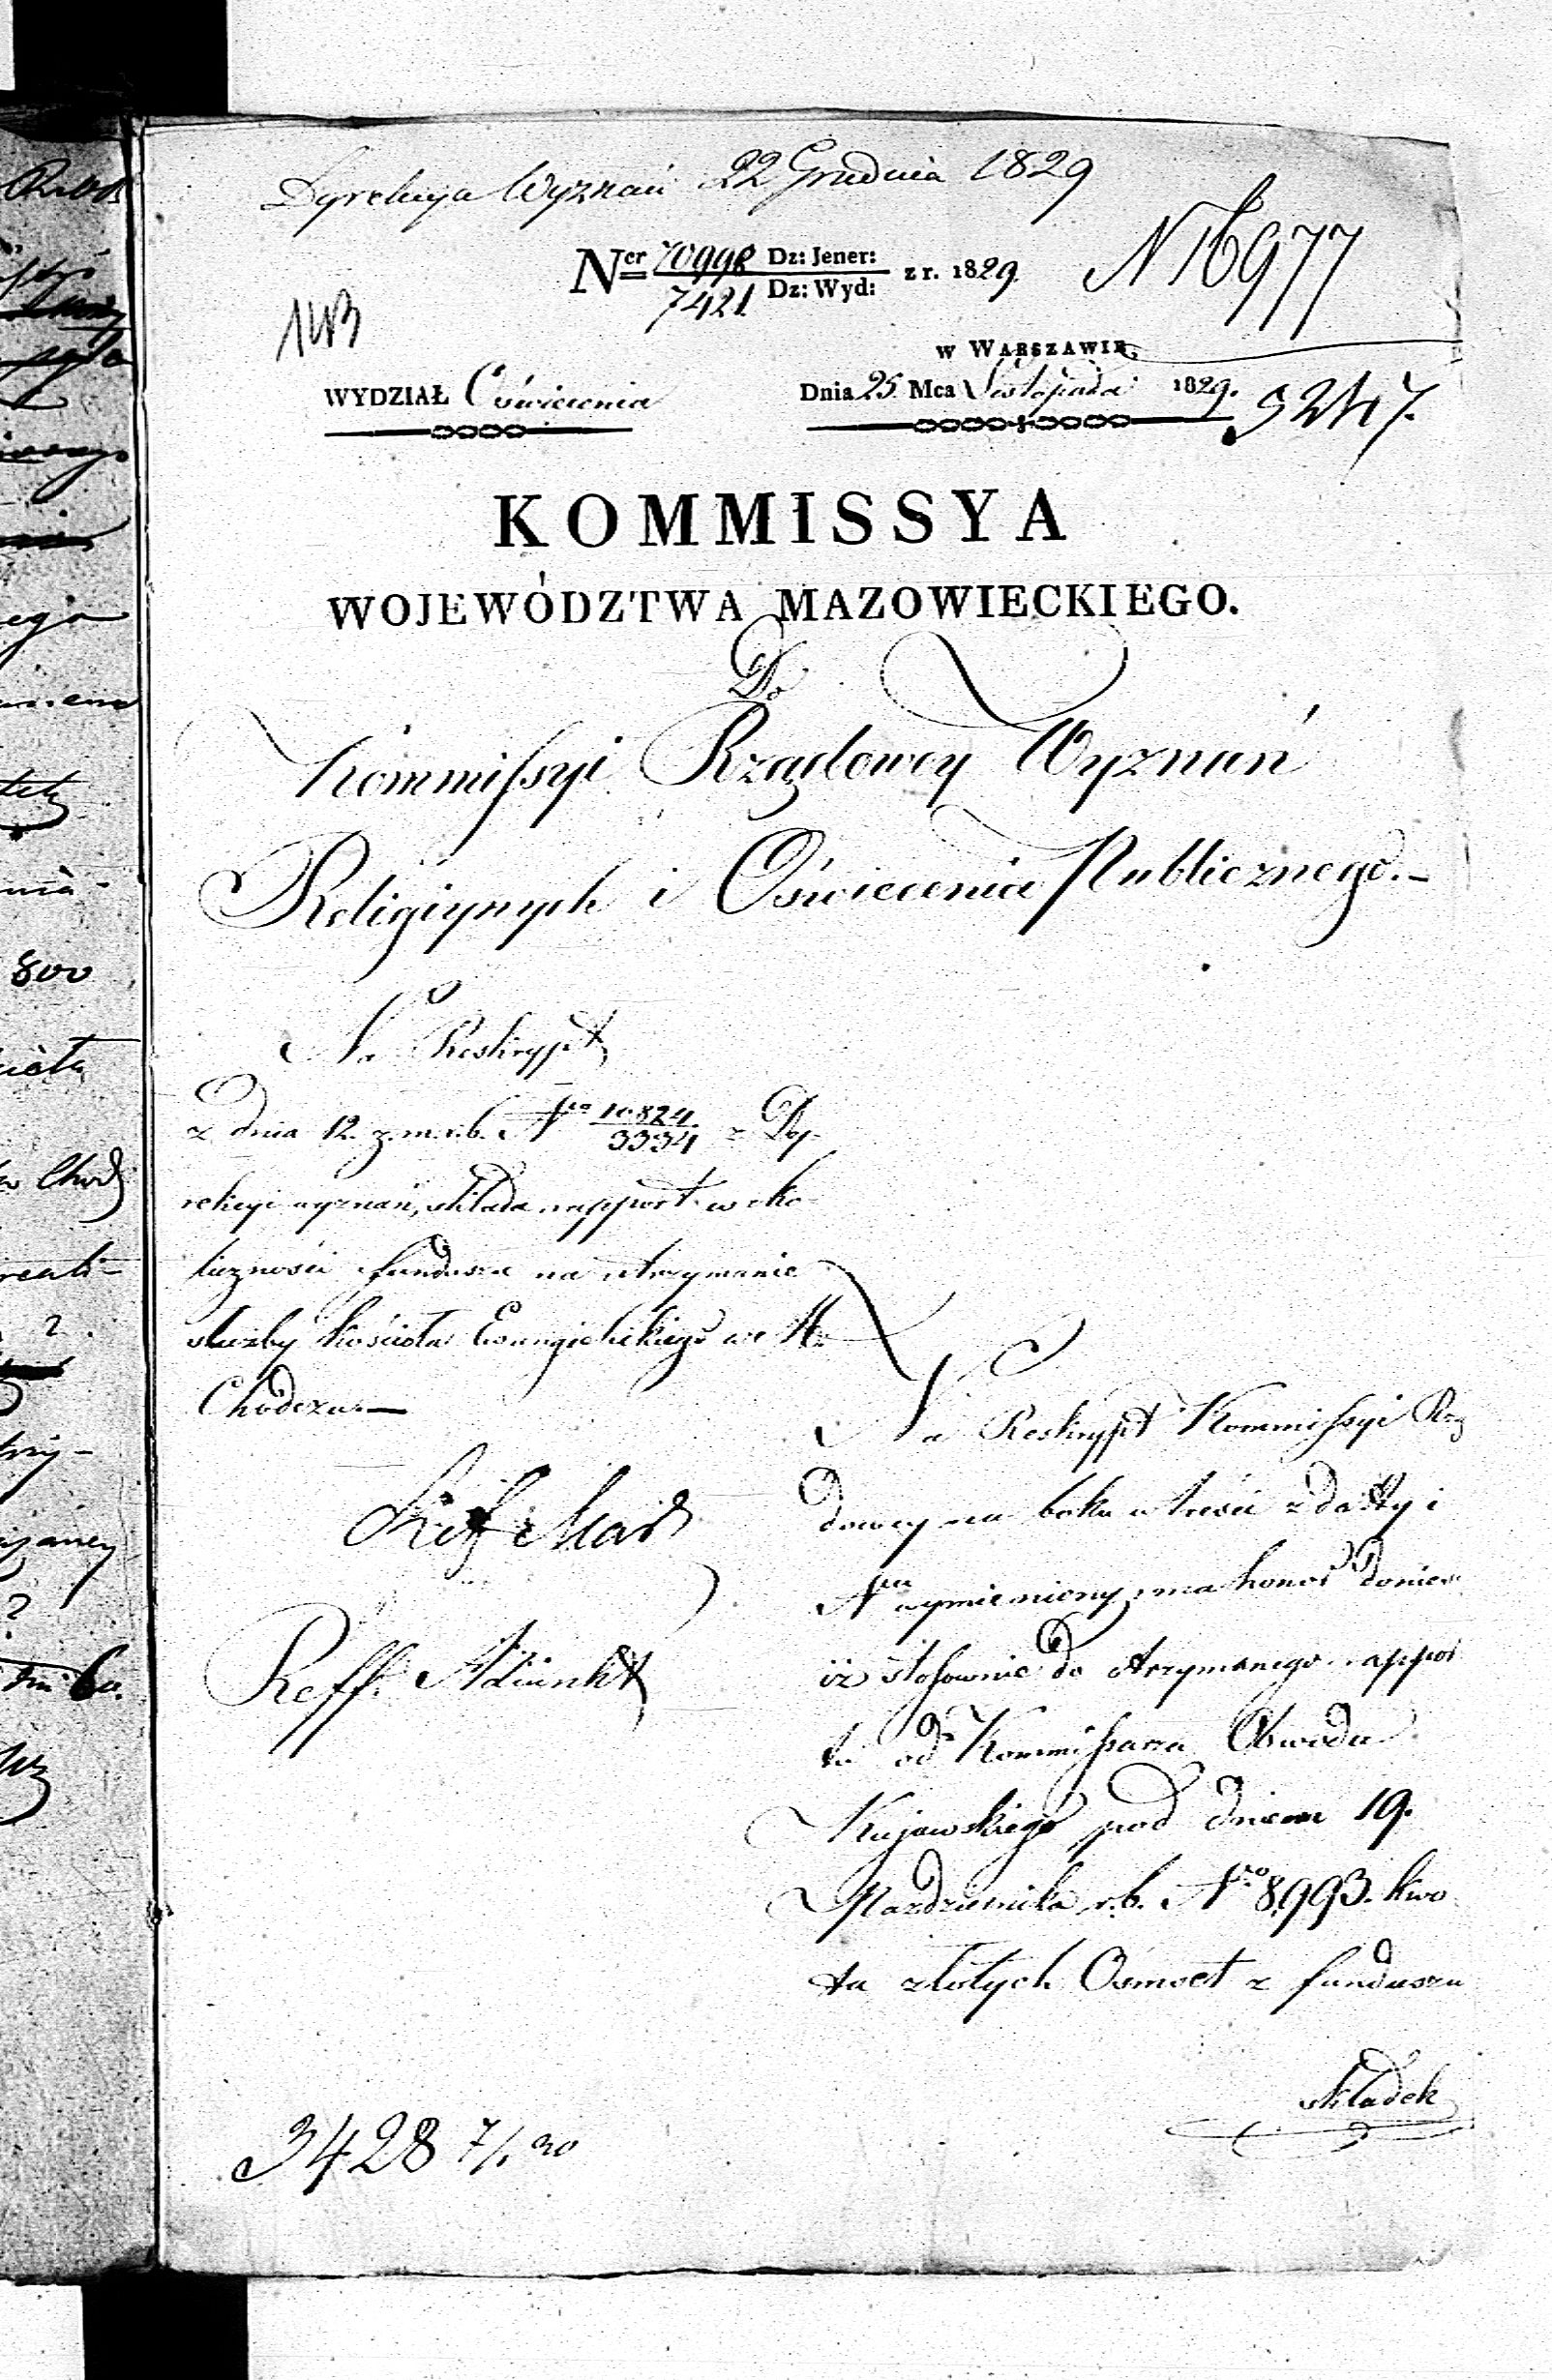 Dyrekcya Wyznań 22 Grudnia 1829
Ner 70998 Dz: Jener: z r. 1829. N 16977
7421 Dz: Wyd:
143
w Warszawie,
WYDZIAŁ Oświecenia Dnia 25. Mca Listopada 1829. 5247.
KOMMISSYA
WOJEWÓDZTWA MAZOWIECKIEGO.
Do
Kommissyi Rządowey Wyznań
Religiynych i Oświecenia Publicznego.-
Na Reskrypt
z dnia 12. z. m. r. b. Nro 10824/3334 z Dy-
rekcyi wyznań, składa rapport w oko-
liczności funduszu na utrzymanie
służby Kościoła Ewangielickiego w M.
Chodczu.—
Reff. Adiunkt
Na Reskrypt Kommissyi Rzą
dowey na boku w treści z daty i
Nru wymieniony, ma honor donieść
iż stosownie do otrzymanego rappor
tu od Kommissarza Obwodu
Kujawskiego pod dniem 19.
Pazdziernika r. b. Nro 8,993. kwo
ta złotych Ośmset z funduszu
składek
3428 7/1 30
800